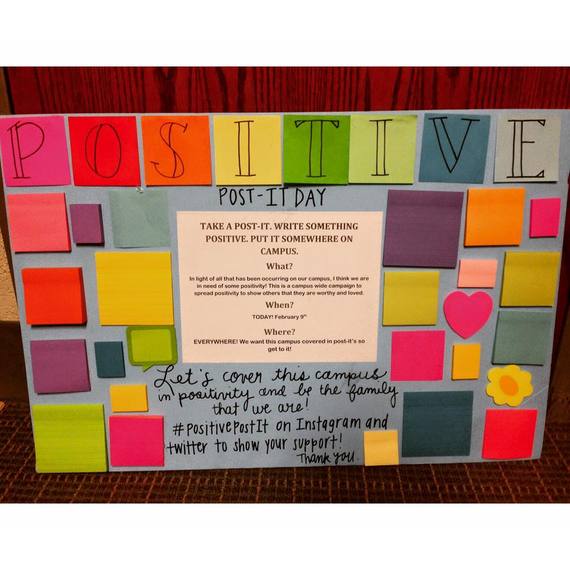 POSITIVE
POST-IT DAY
TAKE A POST-IT. WRITE SOMETHING
POSITIVE. PUT IT SOMEWHERE ON
CAMPUS.
What?
In light of all that has been occurring on our campus, I think we are
in need of some positivity! This is a campus wide campaign to
spread positivity to show others that they are worthy and loved.
When?
TODAY! February 9th
Where?
EVERYWHERE! We want this campus covered in post-it's so
get to it!
Let's cover this campus
in positivity and be the family
that we are!
#PositivePostIt on Instagram and
twitter to show your support!
Thank you.